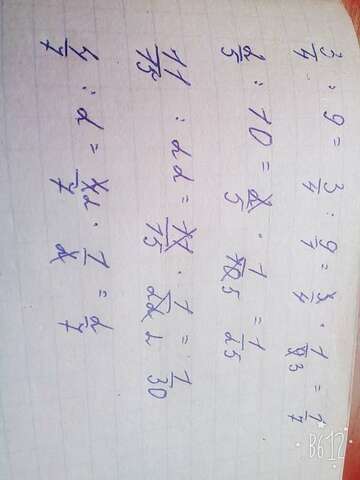 3/4 : 9 = 3/4 : 9/1 = 3/4 · 1/9 3 = 1/7
2/5 : 10 = 2/5 · 1/10 5 = 1/25
11/15 : 22 = 11/15 · 1/22 2 = 1/30
4/7 : 2 = 4 2/7 · 1/2 = 2/7
B612